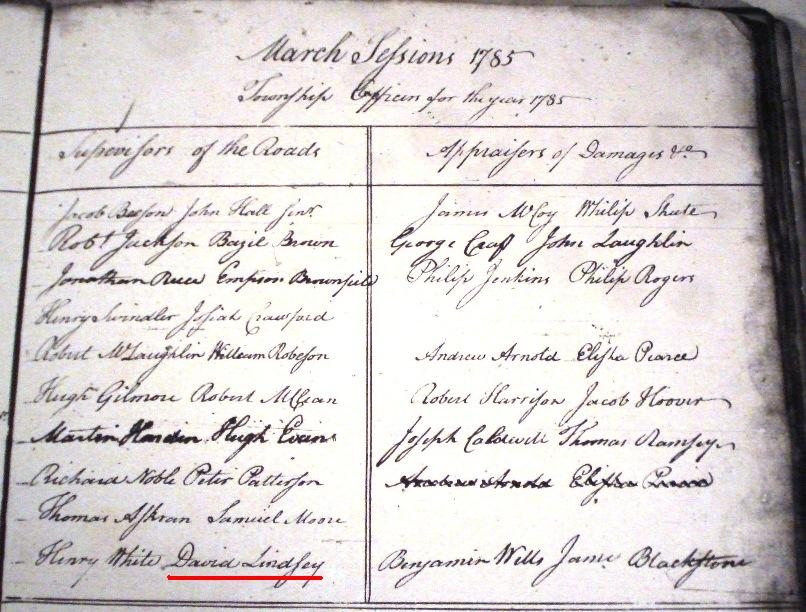 March Sessions 1785
Township Officers for the year 1785
Supervisors of the Roads
Appraisers of Damages &c
Jacob Beeson John Hall Senr.
James McCoy Philip Shute
Robt Jackson Bazil Brown
George Craft John Laughlin
Jonathan Reece Empson Brownfield
Philip Jenkins Philip Rogers
Henry Swindler Josiah Crawford
Robert McLaughlin William Robeson
Andrew Arnold Elisha Pearce
Hugh Gilmore Robert McClean
Robert Harrison Jacob Hoover
Martin Hardin Hugh Evans
Joseph Caldwell Thomas Ramsey
Richard Noble Peter Patterson
Andrew Arnold Elisha Pearce
Thomas Askran Samuel Moore
Henry White David Lindsey
Benjamin Wells James Blackstone